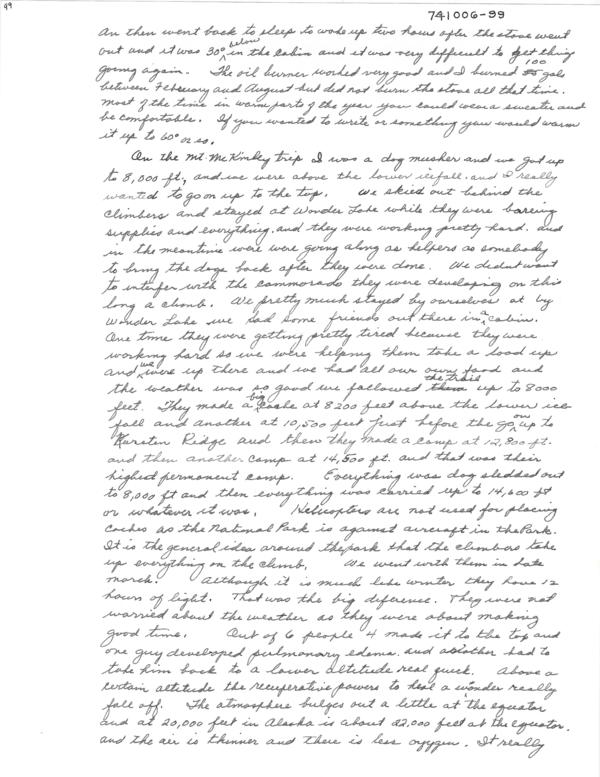 99
741006-99
An then went back to sleep to wake up two hours after the stove went
out and it was 30° below in the cabin and it was very difficult to get thing
going again. The oil burner worked very good and I burned 100 gals
between February and August but did not burn the stove all that time.
Most of the time in warm parts of the year you could wear a sweater and
be comfortable. If you wanted to write or something you would warm
it up to 60° or so.
On the Mt. McKinley trip I was a dog musher and we got up
to 8,000 ft, and we were above the lower icefall and I really
wanted to go on up to the top. We skied out behind the
climbers and stayed at Wonder Lake while they were
supplies and everything, and they were working pretty hard. and
in the meantime were were going along as helpers as somebody
to bring the dogs back after they were done. We didnt want
to interfer with the commorado they were developing on this
long a climb. We pretty much stayed by ourselves at by
Wonder Lake we had some friends out there in a cabin.
One time they were getting pretty tired because they were
working hard so we were helping them take a load up
and we were up there and we had all our own food and
the weather was so good we followed the trail up to 8000
feet. They made a big cache at 8200 feet above the lower ice
fall and another at 10,500 feet just before the go on up to
Karsten Ridge and then they made a camp at 12,800 ft.
and then another camp at 14,500 ft. and that was their
highest permanent camp. Everything was dog sledded out
to 8,000 ft and then everything was carried up to 14,600 ft
or whatever it was. Helicopters are not used for placing
caches as the National Park is against aircraft in the Park.
It is the general idea around the park that the climbers take
up everything on the climb. We went with them in late
march. Although it is much like winter they have 12
hours of light. That was the big diference. They were not
worried about the weather as they were about making
good time. Out of 6 people 4 made it to the top and
one guy developed pulmonary edema and another had to
take him back to a lower altitude real quick. Above a
certain altitude the recuperative powers to heal a wonder really
fall off. The atmosphere bulges out a little at the equator
and at 20,000 feet in Alaska is about 22,000 feet at the equator.
and the air is thinner and there is less oxygen. It really